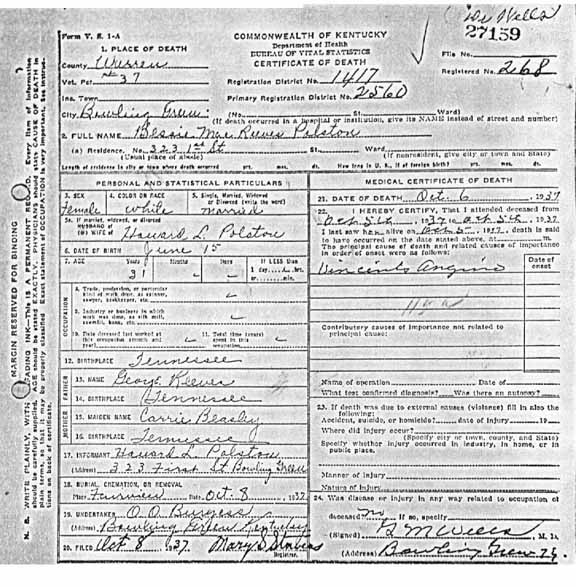 Dr Wells
27159
Form V. S. 1-A
COMMONWEALTH OF KENTUCKY
Department of Health
BUREAU OF VITAL STATISTICS
CERTIFICATE OF DEATH
File No.
Registered No. 268
1. PLACE OF DEATH
County Warren
Vot. Pct #37
Registration District No. 1417
Inc. Town
Primary Registration District No. 2560
City Bowling Green (No. St. Ward)
(If death occurred in a hospital or institution, give its NAME instead of street and number)
2. FULL NAME Bessie Mae Reeves Polston
(a) Residence. No. 323 1st St St. Ward
(Usual place of abode) (If nonresident, give city or town and State)
Length of residence in city or town where death occurred yrs. mos. ds. How long in U. S., if of foreign birth? yrs. mos. ds.
PERSONAL AND STATISTICAL PARTICULARS
3. SEX Female
4. COLOR OR RACE White
5. Single, Married, Widowed or Divorced (write the word) married
5a. If married, widowed, or divorced
HUSBAND of
(or) WIFE of Howard L Polston
6. DATE OF BIRTH June 15
7. AGE Years 31 Months Days If LESS than 1 day, hrs. or min.
OCCUPATION
8. Trade, profession, or particular kind of work done, as spinner, sawyer, bookkeeper, etc.
9. Industry or business in which work was done, as silk mill, sawmill, bank, etc.
10. Date deceased last worked at this occupation (month and year)
11. Total time (years) spent in this occupation
12. BIRTHPLACE Tennessee
FATHER
13. NAME George Reeves
14. BIRTHPLACE Tennessee
MOTHER
15. MAIDEN NAME Carrie Beasley
16. BIRTHPLACE Tennessee
17. INFORMANT Howard L Polston
(Address) 323 First St Bowling Green
18. BURIAL, CREMATION, OR REMOVAL
Place Fairview Date Oct. 8, 1937
19. UNDERTAKER
(Address) Bowling Green Kentucky
20. FILED Oct 8, 1937. Mary S.
Registrar.
MEDICAL CERTIFICATE OF DEATH
21. DATE OF DEATH Oct. 6, 1937
22. I HEREBY CERTIFY, That I attended deceased from
Oct 5th, 1937, to Oct 5th, 1937
I last saw her alive on Oct 5th, 1937, death is said
to have occurred on the date stated above, at m.
The principal cause of death and related causes of importance
in order of onset were as follows:
Date of onset
Vincents Angina
Contributory causes of importance not related to
principal cause:
Name of operation Date of
What test confirmed diagnosis? Was there an autopsy?
23. If death was due to external causes (violence) fill in also the
following:
Accident, suicide, or homicide? date of injury 19
Where did injury occur?
(Specify city or town, county, and State)
Specify whether injury occurred in industry, in home, or in
public place.
Manner of injury
Nature of injury
24. Was disease or injury in any way related to occupation of
deceased? no If so, specify
(Signed) Wells, M. D.
(Address) Bowling Green Ky.
MARGIN RESERVED FOR BINDING